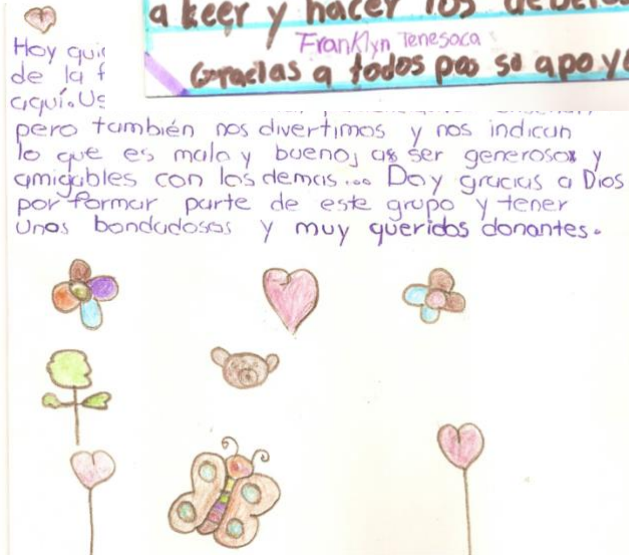 a leer y hacer los
Franklyn Tenesaca
Gracias a todos pos su apoyo
Hoy
de la
aquí. Us
pero también nos divertimos y nos indican
lo que es malo y bueno, a ser generosos y
amigables con los demas... Doy gracias a Dios
por formar parte de este grupo y tener
unos bondadosos y muy queridos donantes.